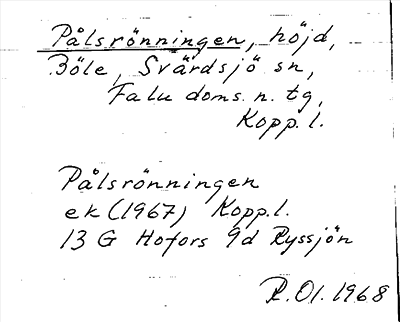 Pålsrönningen, höjd,
Böle, Svärdsjö sn,
Falu doms. n. tg,
Kopp. l.
Pålsrönningen
ek (1967) Kopp. l.
13 G Hofors 9d Ryssjön
R.01.1968